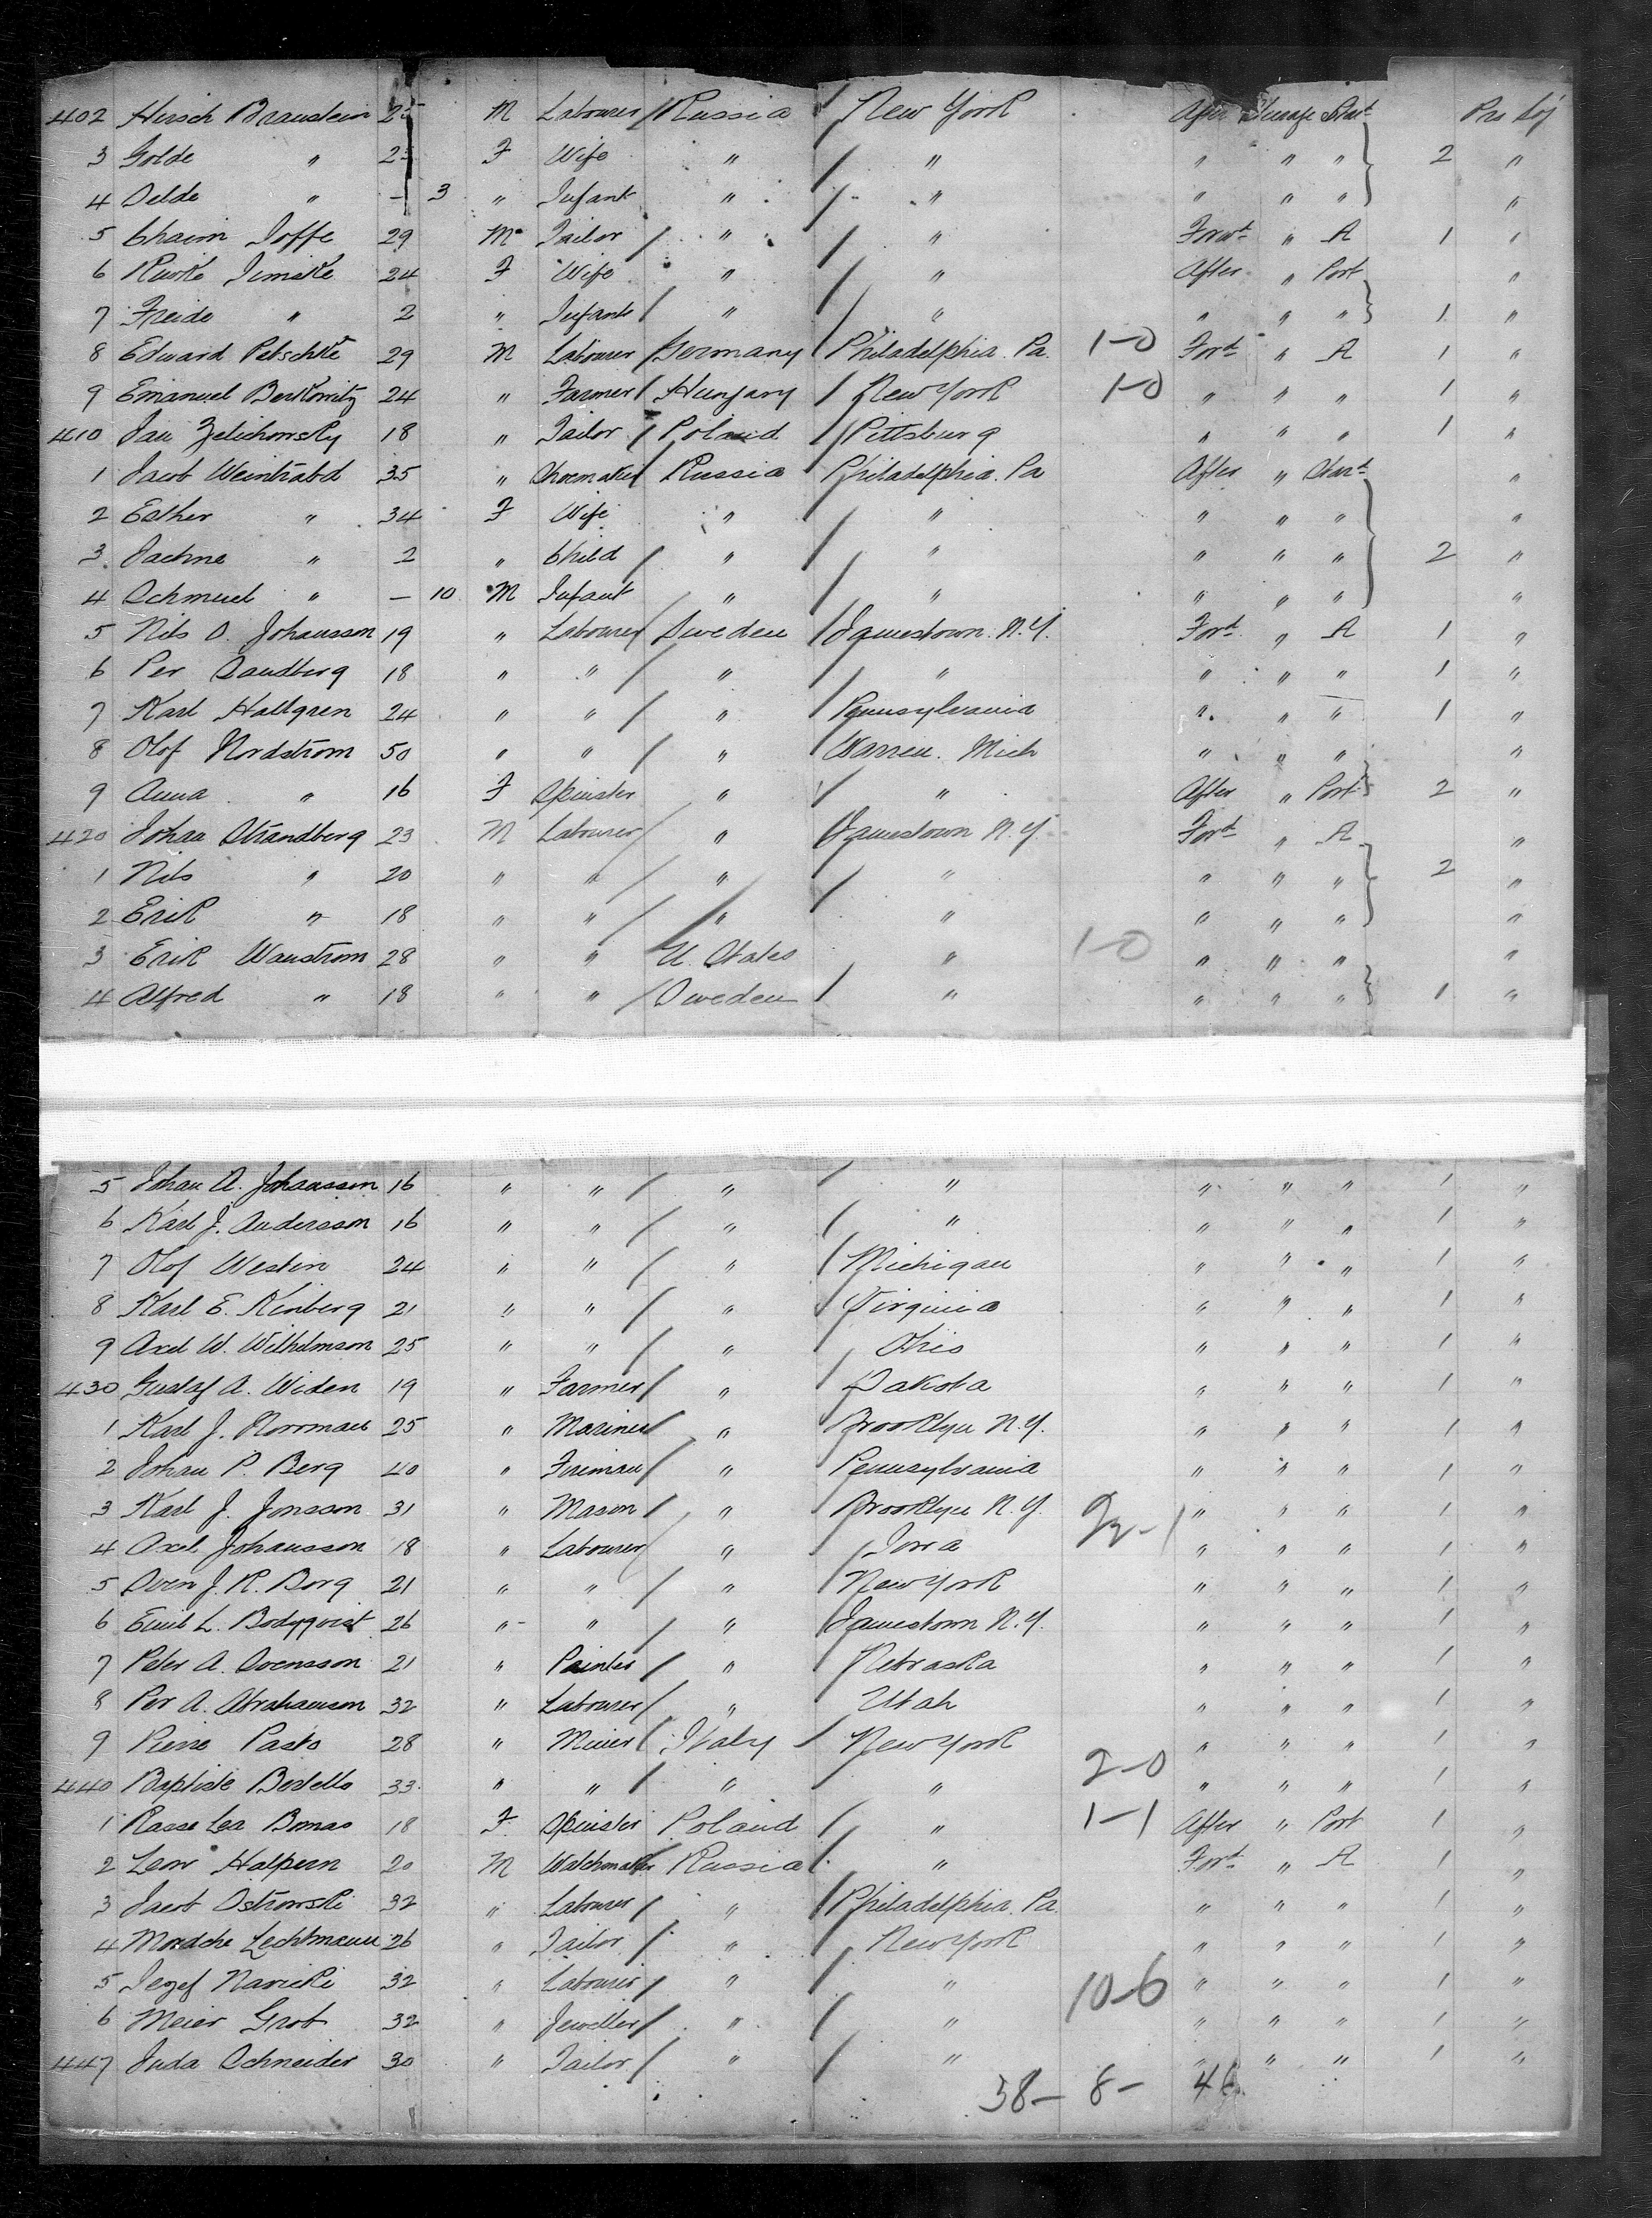 402 Hirsch Braustein 25 M Labourer Russia New York After Steerage Starbd Pro Soj
3 Golde " 25 F Wife " " " " " 2 "
4 Selde " — 3 " Infant " " " " " "
5 Chaim Joffe 29 M Tailor " " Forwd " A 1 "
6 Rurke Jimske 24 F Wife " " After " Port "
7 Freide " 2 " Infant " " " " " 1 "
8 Edward Petschke 29 M Labourer Germany Philadelphia Pa. 1-0 Ford " A 1 "
9 Emanuel Berkowitz 24 " Farmer Hungary New York 1-0 " " " 1 "
410 Jan Zelichowsky 18 " Tailor Poland Pittsburg " " " 1 "
1 Jacob Weintrabd 35 " Shoemaker Russia Philadelphia. Pa After " Starbd "
2 Esther " 34 F Wife " " " " " "
3 Jachne " 2 " Child " " " " " 2 "
4 Schmuel " — 10 M Infant " " " " " "
5 Nils O. Johansson 19 " Labourer Sweden Jamestown. N.Y. Ford " A 1 "
6 Per Sandberg 18 " " " " " " " 1 "
7 Karl Hallgren 24 " " " Pennsylvania " " " 1 "
8 Olof Nordstrom 50 " " " Warren. Mich " " " "
9 Anna " 16 F Spinster " " After " Port 2 "
420 Johan Strandberg 23 M Labourer " Jamestown N.Y. Ford " A "
1 Nils " 20 " " " " " " " 2 "
2 Erik " 18 " " " " " " " "
3 Erik Wanstrom 28 " " U. States " 1-0 " " " "
4 Alfred " 18 " " Sweden " " " " 1 "
5 Johan A. Johansson 16 " " " " " " " 1 "
6 Karl J. Andersson 16 " " " " " " " 1 "
7 Olof Westin 24 " " " Michigan " " " 1 "
8 Karl E. Kinberg 21 " " " Virginia " " " 1 "
9 Axel W. Wilhelmson 25 " " " Ohio " " " 1 "
430 Gustaf A. Widen 19 " Farmer " Dakota " " " 1 "
1 Karl J. Norrman 25 " Mariner " Brooklyn N.Y. " " " 1 "
2 Johan P. Berg 40 " Fireman " Pennsylvania " " " 1 "
3 Karl J. Jonsson 31 " Mason " Brooklyn N.Y. " " " 1 "
4 Axel Johansson 18 " Labourer " Iowa " " " 1 "
5 Sven J. R. Borg 21 " " " New York " " " 1 "
6 Emil L. Bodyqvist 26 " " " Jamestown N.Y. " " " 1 "
7 Peter A. Svensson 21 " Painter " Nebraska " " " 1 "
8 Per A. Abrahamson 32 " Labourer " Utah " " " 1 "
9 Pierre Pasto 28 " Miner Italy New York " " " 1 "
440 Baptiste Bertello 33 " " " " 2-0 " " " 1 "
1 Rassa Lea Bomas 18 F Spinster Poland " 1-1 After " Port 1 "
2 Lew Halpern 20 M Watchmaker Russia " Ford " A 1 "
3 Jacob Ostrowski 32 " Labourer " Philadelphia. Pa. " " " 1 "
4 Mordche Lechtmann 26 " Tailor " New York " " " 1 "
5 Jezef Naricki 32 " Labourer " " 10-6 " " " 1 "
6 Meier Grob 32 " Jeweller " " " " " 1 "
447 Juda Schneider 30 " Tailor " " " " " 1 "
38- 8- 46